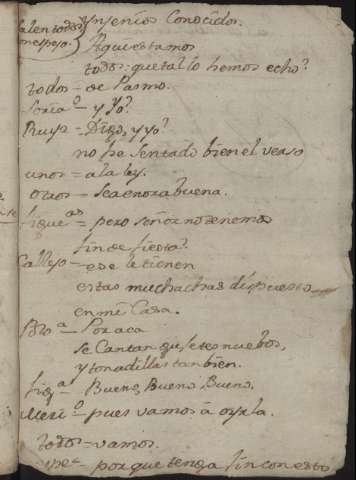 Salen todos
con espejo.
Ynsenios Conocidos.
Aqui estamos
todos = que tal lo hemos echo?
todos = de Pasmo.
Soria^o = y Yo?
Ruiz = Digo, y yo?
no he sentado bien el verso
unos = a la ley.
otros = sea enorabuena.
figue^as = pero señor no tenemos
fin de fiesta?
Callejo = ese le tienen
estas muchachas dispuesto
en mi Casa.
Po^a = Por aca
se Cantan quisetes nuebos,
y tonadillas tanbien.
fig^a = Bueno, Bueno, Bueno.
Meri^o = pues vamos á oyrla.
todos = vamos.
= porque tenga fin con esto